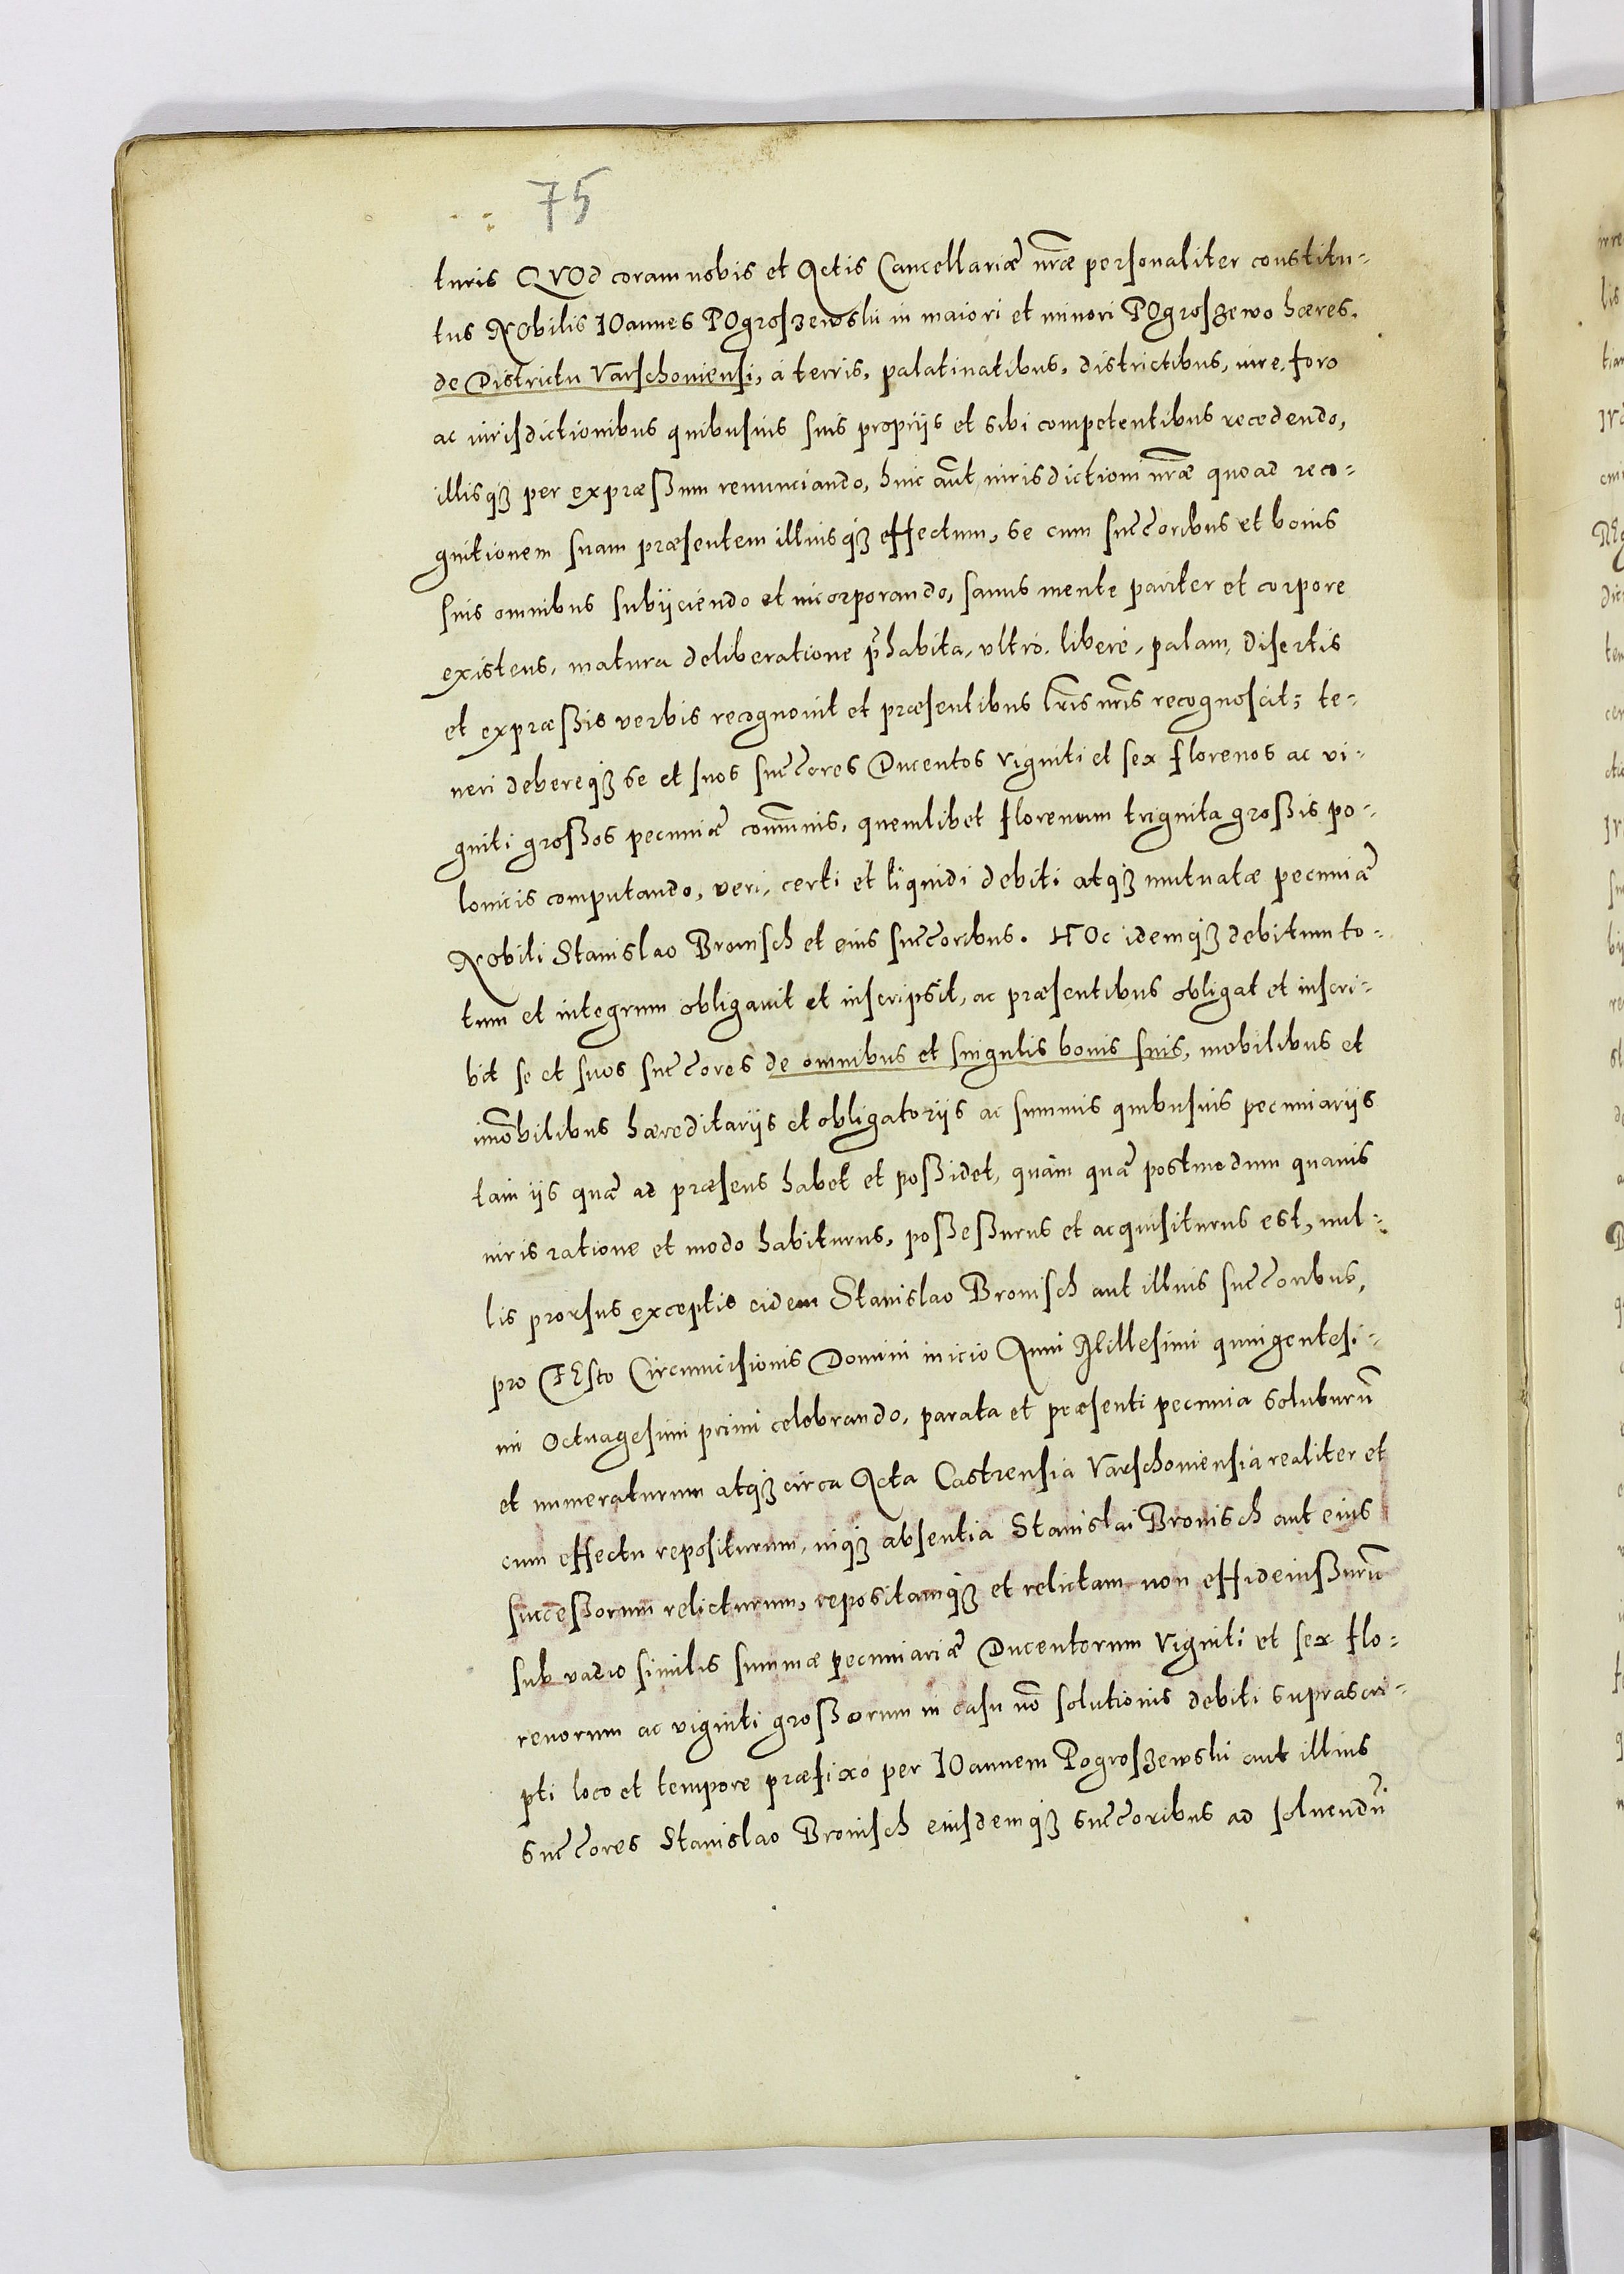 75
turis QVOd coram nobis et Actis Cancellariæ nr̃æ personaliter constitu-
tus NObilis IOannes POgroszewski in maiori et minori POgroszewo hæres.
de Districtu Varschoviensi, à terris, palatinatibus, districtibus, iure, foro
ac iurisdictionibus quibusuis suis proprijs et sibi competentibus recedendo,
illisq₃ per expræßum renunciando, huic aũt iurisdictioni nr̃æ quoad reco-
gnitionem suam præsentem illiusq₃ effectum, se cum succ̃oribus et bonis
suis omnibus subijciendo et incorporando, sanus mente pariter et corpore
existens, matura deliberatione p̃habita, vltro, liberè, palam, disertis
et expræßis verbis recognouit et præsentibus lr̃is nr̃is recognoscit; te-
neri debereq₃ se et suos succ̃ores Ducentos viginti et sex florenos ac vi-
ginti großos pecuniæ com̃unis, quemlibet florenum triginta großis po-
lonicis computando, veri, certi et liquidi debiti atq₃ mutuatæ pecuniæ
NObili Stanislao Bronisch et eius succ̃oribus. HOc idemq₃ debitum to-
tum et integrum obligauit et inscripsit, ac præsentibus obligat et inscri-
bit se et suos succ̃ores de omnibus et singulis bonis suis, mobilibus et
im̃obilibus hæreditarijs et obligatorijs ac summis quibusuis pecuniarijs
tam ijs quæ ad præsens habet et poßidet, quàm quæ postmodum quauis
iuris ratione et modo habiturus, poßeßurus et acquisiturus est, nul-
lis prorsus exceptis eidem Stanislao Bronisch aut illius succ̃oribus,
pro FEsto Circumcisionis Domini inicio Anni Millesimi quingentesi-
mi Octuagesimi primi celebrando, parata et præsenti pecunia soluturũ
et numeraturum atq₃ circa Acta Castrensia Varschoviensia realiter et
cum effectu repositurum, inq₃ absentia Stanislai Bronisch aut eius
succeßorum relicturum, repositamq₃ et relictam non effideiußurũ
sub vadio similis summæ pecuniariæ Ducentorum Viginti et sex flo-
renorum ac viginti großorum in casu nõ solutionis debiti suprascri-
pti loco et tempore præfixo per IOannem Pogroszewski aut illius
succ̃ores Stanislao Bronisch eiusdemq₃ succ̃oribus ad soluendũ